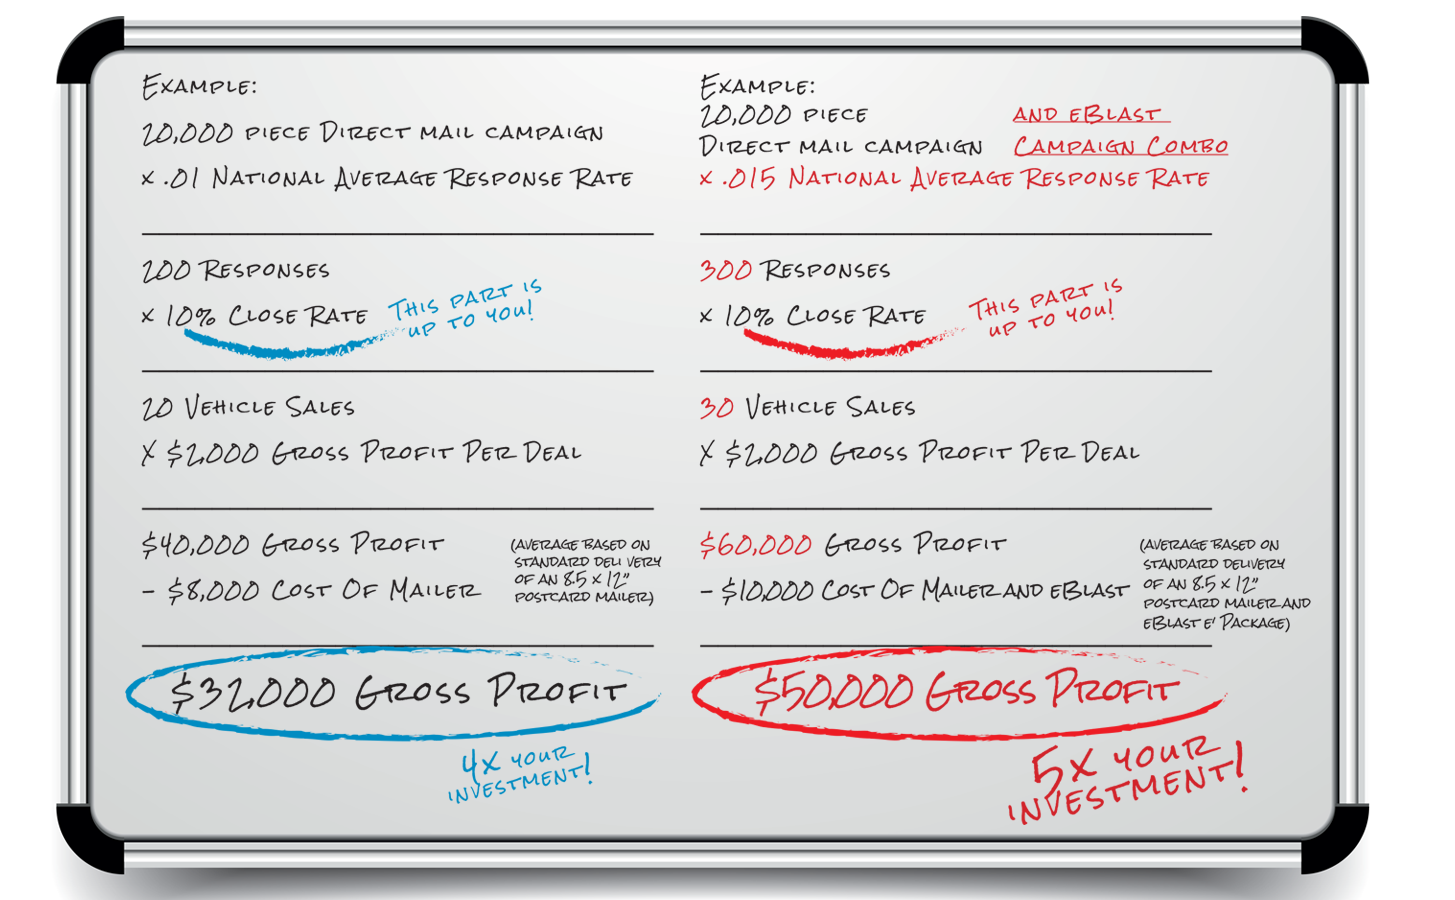 Example:
20,000 piece Direct mail campaign
x .01 National Average Response Rate
200 Responses
x 10% Close Rate
This part is
up to you!
20 Vehicle Sales
X $2,000 Gross Profit Per Deal
$40,000 Gross Profit
- $8,000 Cost Of Mailer
(average based on
standard deli very
of an 8.5 x 12"
postcard mailer)
$32,000 Gross Profit
4x your
investment!
Example:
20,000 piece and eBlast
Direct mail campaign Campaign Combo
x .015 National Average Response Rate
300 Responses
x 10% Close Rate
This part is
up to you!
30 Vehicle Sales
X $2,000 Gross Profit Per Deal
$60,000 Gross Profit
- $10,000 Cost Of Mailer and eBlast
(average based on
standard delivery
of an 8.5 x 12"
postcard mailer and
eBlast e' Package)
$50,000 Gross Profit
5x your
investment!